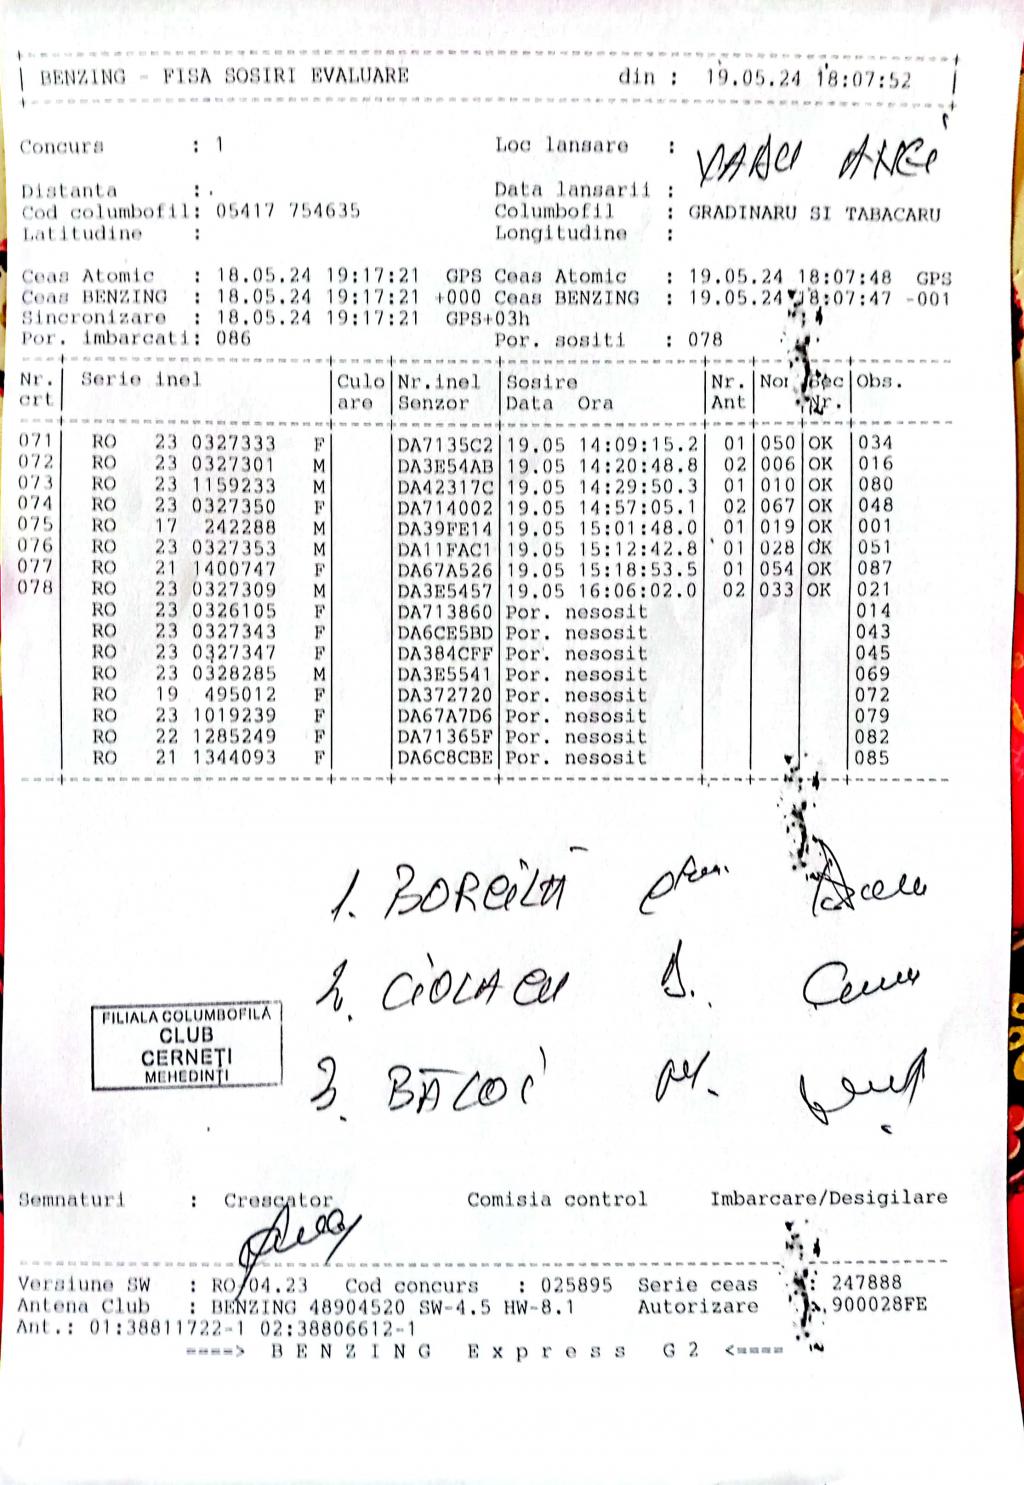 BENZING - FISA SOSIRI EVALUARE din : 19.05.24 18:07:52
Concurs : 1 Loc lansare :
Distanta : . Data lansarii :
Cod columbofil: 05417 754635 Columbofil : GRADINARU SI TABACARU
Latitudine : Longitudine :
Ceas Atomic : 18.05.24 19:17:21 GPS Ceas Atomic : 19.05.24 18:07:48 GPS
Ceas BENZING : 18.05.24 19:17:21 +000 Ceas BENZING : 19.05.24 18:07:47 -001
Sincronizare : 18.05.24 19:17:21 GPS+03h
Por. imbarcati: 086 Por. sositi : 078
Nr. Serie inel Culo Nr.inel Sosire Nr. Sec Obs.
crt are Senzor Data Ora Ant Nr.
071 RO 23 0327333 F DA7135C2 19.05 14:09:15.2 01 050 OK 034
072 RO 23 0327301 M DA3E54AB 19.05 14:20:48.8 02 006 OK 016
073 RO 23 1159233 M DA42317C 19.05 14:29:50.3 01 010 OK 080
074 RO 23 0327350 F DA714002 19.05 14:57:05.1 02 067 OK 048
075 RO 17 242288 M DA39FE14 19.05 15:01:48.0 01 019 OK 001
076 RO 23 0327353 M DA11FAC1 19.05 15:12:42.8 01 028 OK 051
077 RO 21 1400747 F DA67A526 19.05 15:18:53.5 01 054 OK 087
078 RO 23 0327309 M DA3E5457 19.05 16:06:02.0 02 033 OK 021
RO 23 0326105 F DA713860 Por. nesosit 014
RO 23 0327343 F DA6CE5BD Por. nesosit 043
RO 23 0327347 F DA384CFF Por. nesosit 045
RO 23 0328285 M DA3E5541 Por. nesosit 069
RO 19 495012 F DA372720 Por. nesosit 072
RO 23 1019239 F DA67A7D6 Por. nesosit 079
RO 22 1285249 F DA71365F Por. nesosit 082
RO 21 1344093 F DA6C8CBE Por. nesosit 085
1. BORCILĂ
2. CIOLACU
3. BĂLOI
FILIALA COLUMBOFILĂ
CLUB
CERNEȚI
MEHEDINȚI
Semnaturi : Crescator Comisia control Imbarcare/Desigilare
Versiune SW : RO-04.23 Cod concurs : 025895 Serie ceas : 247888
Antena Club : BENZING 48904520 SW-4.5 HW-8.1 Autorizare : 900028FE
Ant.: 01:38811722-1 02:38806612-1
====> B E N Z I N G E x p r e s s G 2 <====